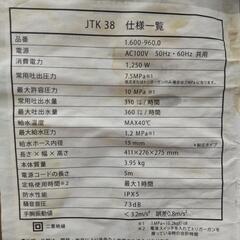 JTK 38 仕様一覧
品番 1.600-960.0
電源 AC100V 50Hz・60Hz 共用
消費電力 1,250 W
常用吐出圧力 7.5MPa※1
最大許容圧力 10 MPa※1
常用吐出水量 310 ㍑/時間
最大吐出水量 360 ㍑/時間
給水温度 MAX40℃
最大給水圧力 1.2 MPa※1
給水ホース内径 15 mm
411×276×275 mm
本体質量 3.95 kg
電源コードの長さ 5m
定格使用時間 ※2
防水性能 IPX5
騒音値 73dB
手腕振動値 <3.2m/s² 誤差0.8m/s²
※1 1MPa=10.2kgf/㎠
※2 電源スイッチを入れてトリガーガンを